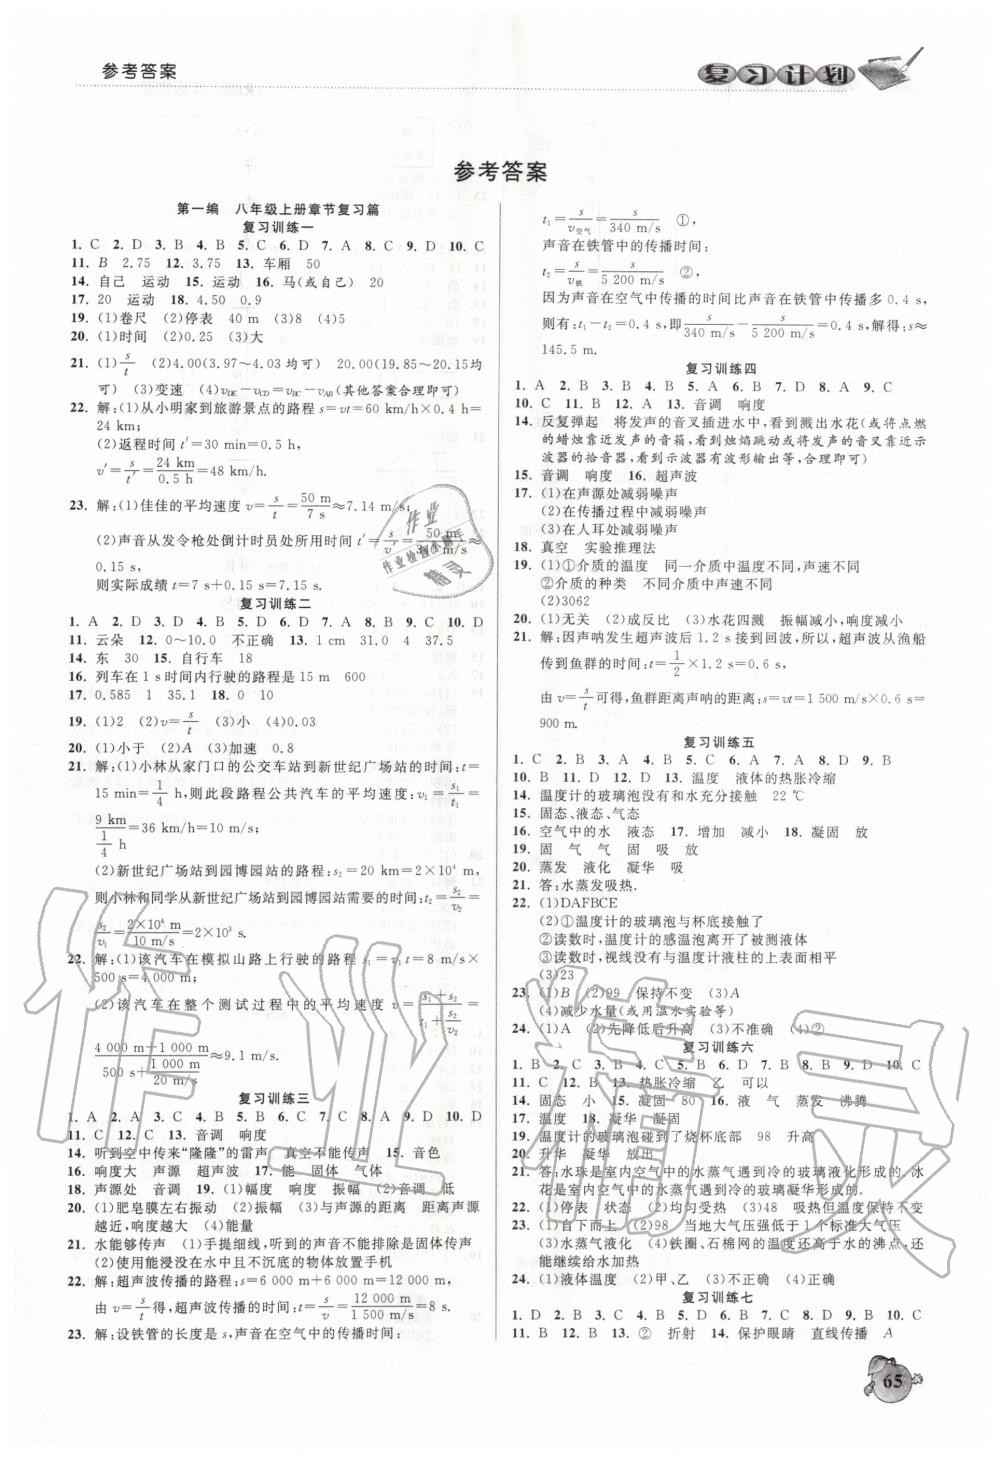 参考答案
复习计划
参考答案
第一编 八年级上册章节复习篇
复习训练一
1. C 2. D 3. B 4. B 5. C 6. D 7. A 8. C 9. D 10. C
11. B 2.75 12. 3.75 13. 车厢 50
14. 自己 运动 15. 运动 16. 马(或自己) 20
17. 20 运动 18. 4.50 0.9
19. (1)卷尺 (2)停表 40 m (3)8 (4)5
20. (1)时间 (2)0.25 (3)大
21. (1)s/t (2)4.00(3.97~4.03 均可) 20.00(19.85~20.15均
可) (3)变速 (4)vDE-vCD=vBC-vAB(其他答案合理即可)
22. 解:(1)从小明家到旅游景点的路程 s=vt=60 km/h×0.4 h=
24 km;
(2)返程时间 t′=30 min=0.5 h,
v′=s/t′=24 km/0.5 h=48 km/h.
23. 解:(1)佳佳的平均速度 v=s/t=50 m/7 s≈7.14 m/s;
(2)声音从发令枪处到计时员处所用时间 t′=s/v′=50 m/340 m/s≈
0.15 s,
则实际成绩 t=7 s+0.15 s=7.15 s.
复习训练二
1. A 2. D 3. D 4. B 5. D 6. D 7. A 8. B 9. C 10. D
11. 云朵 12. 0~10.0 不正确 13. 1 cm 31.0 4 37.5
14. 东 30 15. 自行车 18
16. 列车在 1 s 时间内行驶的路程是 15 m 600
17. 0.585 1 35.1 18. 0 10
19. (1)2 (2)v=s/t (3)小 (4)0.03
20. (1)小于 (2)A (3)加速 0.8
21. 解:(1)小林从家门口的公交车站到新世纪广场站的时间:t=
15 min=1/4 h,则此段路程公共汽车的平均速度:v=s1/t1=
9 km/(1/4 h)=36 km/h=10 m/s;
(2)新世纪广场站到园博园站的路程:s2=20 km=2×10⁴ m,
则小林和同学从新世纪广场站到园博园站的时间:t2=s2/v2=
s2/v1=2×10⁴ m/10 m/s=2×10³ s.
22. 解:(1)该汽车在模拟山路上行驶的路程 s1=v1t=8 m/s×
500 s=4 000 m;
(2)该汽车在整个测试过程中的平均速度 v=(s1+s2)/(t1+s2/v2)=
(4 000 m+1 000 m)/(500 s+1 000 m/20 m/s)≈9.1 m/s.
复习训练三
1. A 2. A 3. C 4. B 5. C 6. C 7. C 8. A 9. D 10. D
11. C 12. C 13. 音调 响度
14. 听到空中传来“隆隆”的雷声 真空不能传声 15. 音色
16. 响度大 声源 超声波 17. 能 固体 气体
18. 声源处 音调 19. (1)幅度 响度 振幅 (2)音调 低
20. (1)肥皂膜左右振动 (2)振幅 (3)与声源的距离 距离声源
越近,响度越大 (4)能量
21. 水能够传声 (1)手提细线,听到的声音可能是固体传声
(2)使用能浸没在水中且不沉底的防水袋放置手机
22. 解:超声波传播的路程:s=6 000 m+6 000 m=12 000 m,
由 v=s/t得,超声波传播时间:t=s/v=12 000 m/1 500 m/s=8 s.
23. 解:设铁管的长度是 s,声音在空气中的传播时间:
t1=s/v空气=s/340 m/s ①,
声音在铁管中的传播时间:
t2=s/v铁=s/5 200 m/s ②,
因为声音在空气中传播的时间比声音在铁管中传播多 0.4 s,
则有:t1-t2=0.4 s,即s/340 m/s-s/5 200 m/s=0.4 s,解得:s≈
145.5 m.
复习训练四
1. A 2. B 3. B 4. B 5. A 6. A 7. B 8. A 9. C
10. C 11. B 12. A 13. 音调 响度
14. 反复弹起 将发声的音叉插进水中,看到溅出水花(或将点燃
的蜡烛靠近发声的音箱,看到烛焰跳动或将发声的音叉靠近示
波器的拾音器,看到示波器有波形输出等,合理即可)
15. 音调 响度 16. 超声波
17. (1)在声源处减弱噪声
(2)在传播过程中减弱噪声
(3)在人耳处减弱噪声
18. 真空 实验推理法
19. (1)①介质的温度 同一介质中声速不同
②介质的种类 不同介质中声速不同
(2)3062
20. (1)无关 (2)成反比 (3)水花四溅 振幅减小,响度减小
21. 解:因声呐发生超声波后 1.2 s 接到回波,所以,超声波从渔船
传到鱼群的时间:t=1/2×1.2 s=0.6 s,
由 v=s/t可得,鱼群距离声呐的距离:s=vt=1 500 m/s×0.6 s=
900 m.
复习训练五
1. C 2. B 3. A 4. B 5. C 6. A 7. A 8. D 9. B
10. B 11. D 12. D 13. 温度 液体的热胀冷缩
14. 温度计的玻璃泡没有和水充分接触 22 ℃
15. 固态、液态、气态
16. 空气中的水 液态 17. 增加 减小 18. 凝固 放
19. 固 气 气 固 吸 放
20. 蒸发 液化 凝华 吸
21. 答:水蒸发吸热.
22. (1)DAFBCE
(2)①温度计的玻璃泡与杯底接触了
②读数时,温度计的感温泡离开了被测液体
③读数时,视线没有与温度计液柱的上表面相平
(3)23
23. (1)B (2)99 保持不变 (3)A
(4)减少水量(或用温水实验等)
24. (1)A (2)先降低后升高 (3)不准确 (4)②
复习训练六
1. B 2. C 3. B 4. C 5. B 6. D 7. B 8. B 9. D 10. C
11. C 12. B 13. 热胀冷缩 乙 可以
14. 固态 小 15. 凝固 80 16. 液 气 蒸发 沸腾
17. 温度 18. 凝华 凝固
19. 温度计的玻璃泡碰到了烧杯底部 98 升高
20. 升华 凝华 放出
21. 答:水珠是室内空气中的水蒸气遇到冷的玻璃液化形成的,冰
花是室内空气中的水蒸气遇到冷的玻璃凝华形成的.
22. (1)停表 状态 (2)均匀受热 (3)48 吸热但温度保持不变
23. (1)自下而上 (2)98 当地大气压强低于 1 个标准大气压
(3)水蒸气液化放热 (4)铁圈、石棉网的温度还高于水的沸点,还
能继续给水加热
24. (1)液体温度 (2)甲、乙 (3)不正确 (4)正确
复习训练七
1. D 2. B 3. C 4. B 5. D 6. D 7. B 8. D 9. B 10. C
11. B 12. B 13. ② 折射 14. 保护眼睛 直线传播 A
65